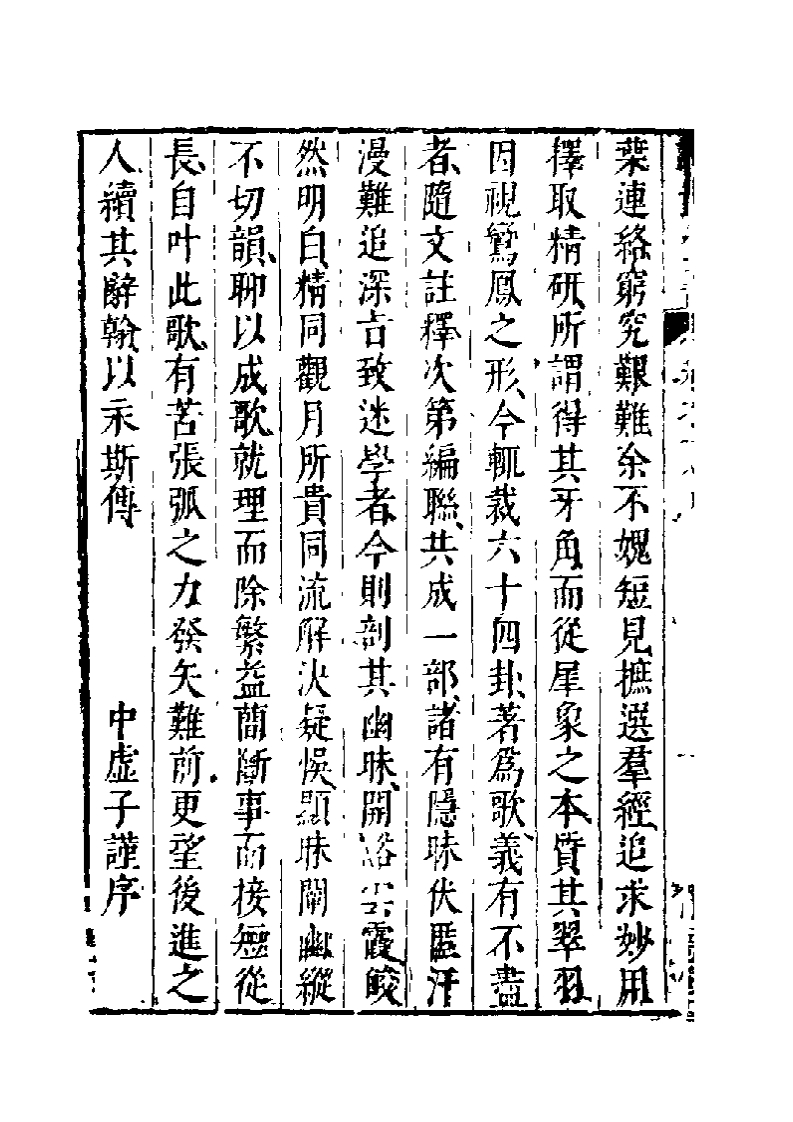 葉連絡窮究艱難余不媿短見摭選羣經追求妙用
擇取精研所謂得其牙角而從犀象之本質其翠羽
因視鸞鳳之形今輒裁六十四卦著爲歌義有不盡
者隨文註釋次第編聯共成一部諸有隱昧伏匿汗
漫難追深言致迷學者今則剖其幽昧開谿雲霞皎
然明白精同觀月所貴同流解决疑悞顯昧闡幽縱
不切韻聊以成歌就理而除繁益簡斷事而接短從
長自叶此歌有苦張弧之力發矢難前更望後進之
人續其辭翰以永斯傳
中虛子謹序